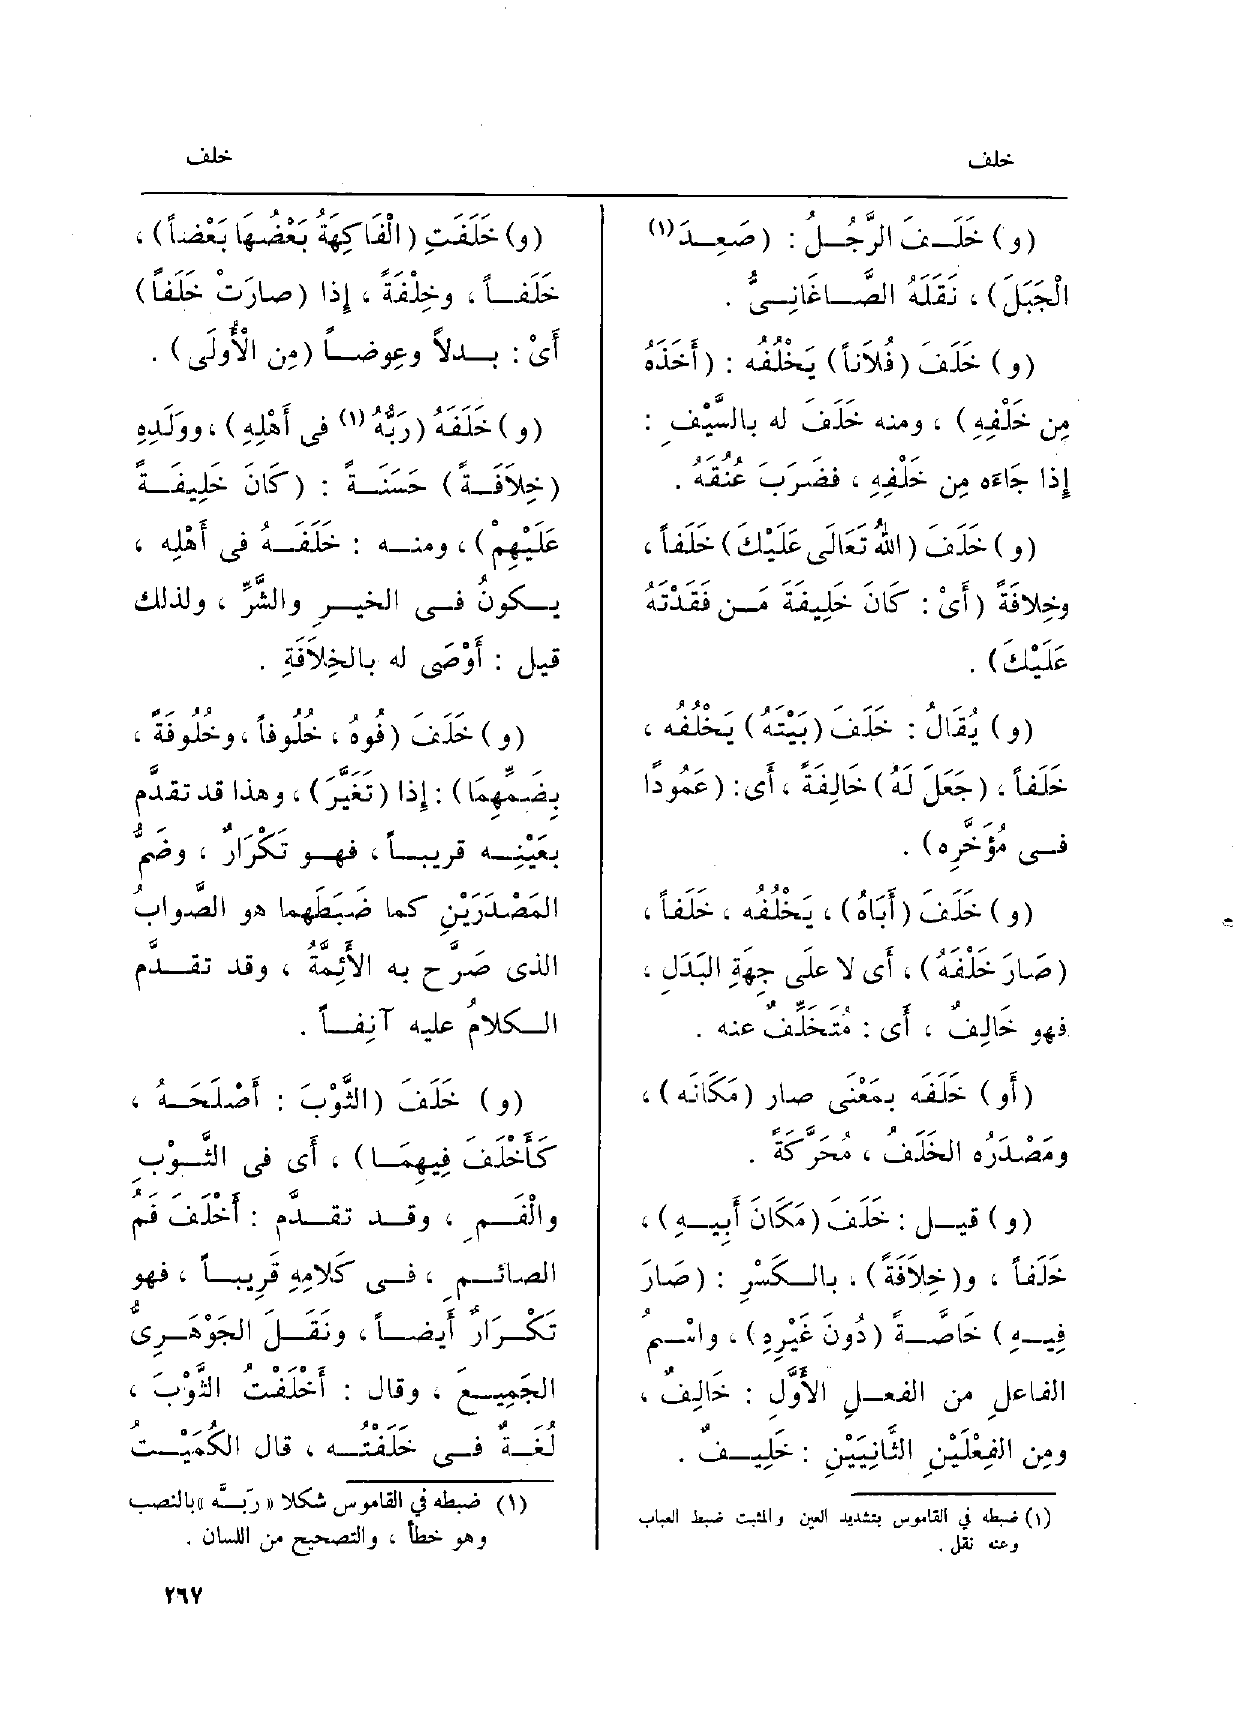 خلف
خلف
(و) خَلَفَ الرَّجُلُ : (صَعِدَ (١)
الْجَبَلَ) ، نَقَلَهُ الصَّاغَانِيُّ .
(و) خَلَفَ (فُلَاناً) يَخْلُفُه : (أَخَذَهُ
مِن خَلْفِهِ) ، ومنه خَلَفَ له بالسَّيْفِ :
إذا جَاءَه مِن خَلْفِهِ ، فضَرَبَ عُنُقَهُ .
(و) خَلَفَ (اللهُ تَعَالَى عَلَيْكَ) خَلَفاً ،
وخِلافَةً (أَيْ : كَانَ خَلِيفَةَ مَن فَقَدْتَهُ
عَلَيْكَ) .
(و) يُقَالُ : خَلَفَ (بَيْتَهُ) يَخْلُفُه ،
خَلَفاً ، (جَعَلَ لَهُ) خَالِفَةً ، أى: (عَمُودًا
فى مُؤَخَّرِه) .
(و) خَلَفَ (أَبَاهُ) ، يَخْلُفُه ، خَلَفاً ،
(صَارَ خَلْفَهُ) ، أى لا على جِهَةِ البَدَلِ ،
فهو خَالِفٌ ، أى : مُتَخَلِّفٌ عنه .
(أو) خَلَفَه بمَعْنَى صار (مَكَانَه) ،
ومَصْدَرُه الخَلَفُ ، مُحَرَّكَةً .
(و) قيل : خَلَفَ (مَكَانَ أَبِيهِ) ،
خَلَفاً ، و(خِلَافَةً) ، بالكَسْرِ : (صَارَ
فِيهِ) خَاصَّةً (دُونَ غَيْرِهِ) ، واسْمُ
الفاعلِ من الفعلِ الأَوَّلِ : خَالِفٌ ،
ومِن الفِعْلَيْنِ الثَّانِيَيْنِ : خَلِيفٌ .
(١) ضبطه في القاموس بتشديد العين والمثبت ضبط العباب
وعنه نقل .
(و) خَلَفَتِ (الْفَاكِهَةُ بَعْضُهَا بَعْضاً) ،
خَلَفاً ، وخِلْفَةً ، إذا (صارَتْ خَلَفاً)
أَىْ : بدلاً وعِوضاً (مِن الْأُولَى) .
(و) خَلَفَهُ (رَبُّهُ (١) فى أَهْلِهِ) ، ووَلَدِهِ
(خِلَافَةً) حَسَنَةً : (كَانَ خَلِيفَةً
عَلَيْهِمْ) ، ومنه : خَلَفَهُ فى أَهْلِه ،
يكونُ فى الخيرِ والشَّرِّ ، ولذلك
قيل : أَوْصَى له بالخِلَافَةِ .
(و) خَلَفَ (فُوهُ ، خُلُوفاً ، وخُلُوفَةً ،
بضَمِّهِمَا) : إذا (تَغَيَّرَ) ، وهذا قد تقدَّم
بعَيْنِه قريباً ، فهو تَكْرَارٌ ، وضَمُّ
المَصْدَرَيْنِ كما ضَبَطَهما هو الصَّوابُ
الذى صَرَّح به الأَئِمَّةُ ، وقد تقدَّم
الكلامُ عليه آنِفاً .
(و) خَلَفَ (الثَّوْبَ : أَصْلَحَهُ ،
كَأَخْلَفَ فِيهِمَا) ، أى فى الثَّوْبِ
والْفَمِ ، وقد تقدَّم : أَخْلَفَ فَمُ
الصائمِ ، فى كلامِه قَرِيباً ، فهو
تَكْرَارٌ أَيضاً ، ونَقَلَ الجَوْهَرِىُّ
الجَمِيعَ ، وقال : أَخْلَفْتُ الثَّوْبَ ،
لُغَةٌ فى خَلَفْتُه ، قال الكُمَيْتُ
(١) ضبطه في القاموس شكلا « رَبَّه » بالنصب
وهو خطأ ، والتصحيح من اللسان .
٢٦٧